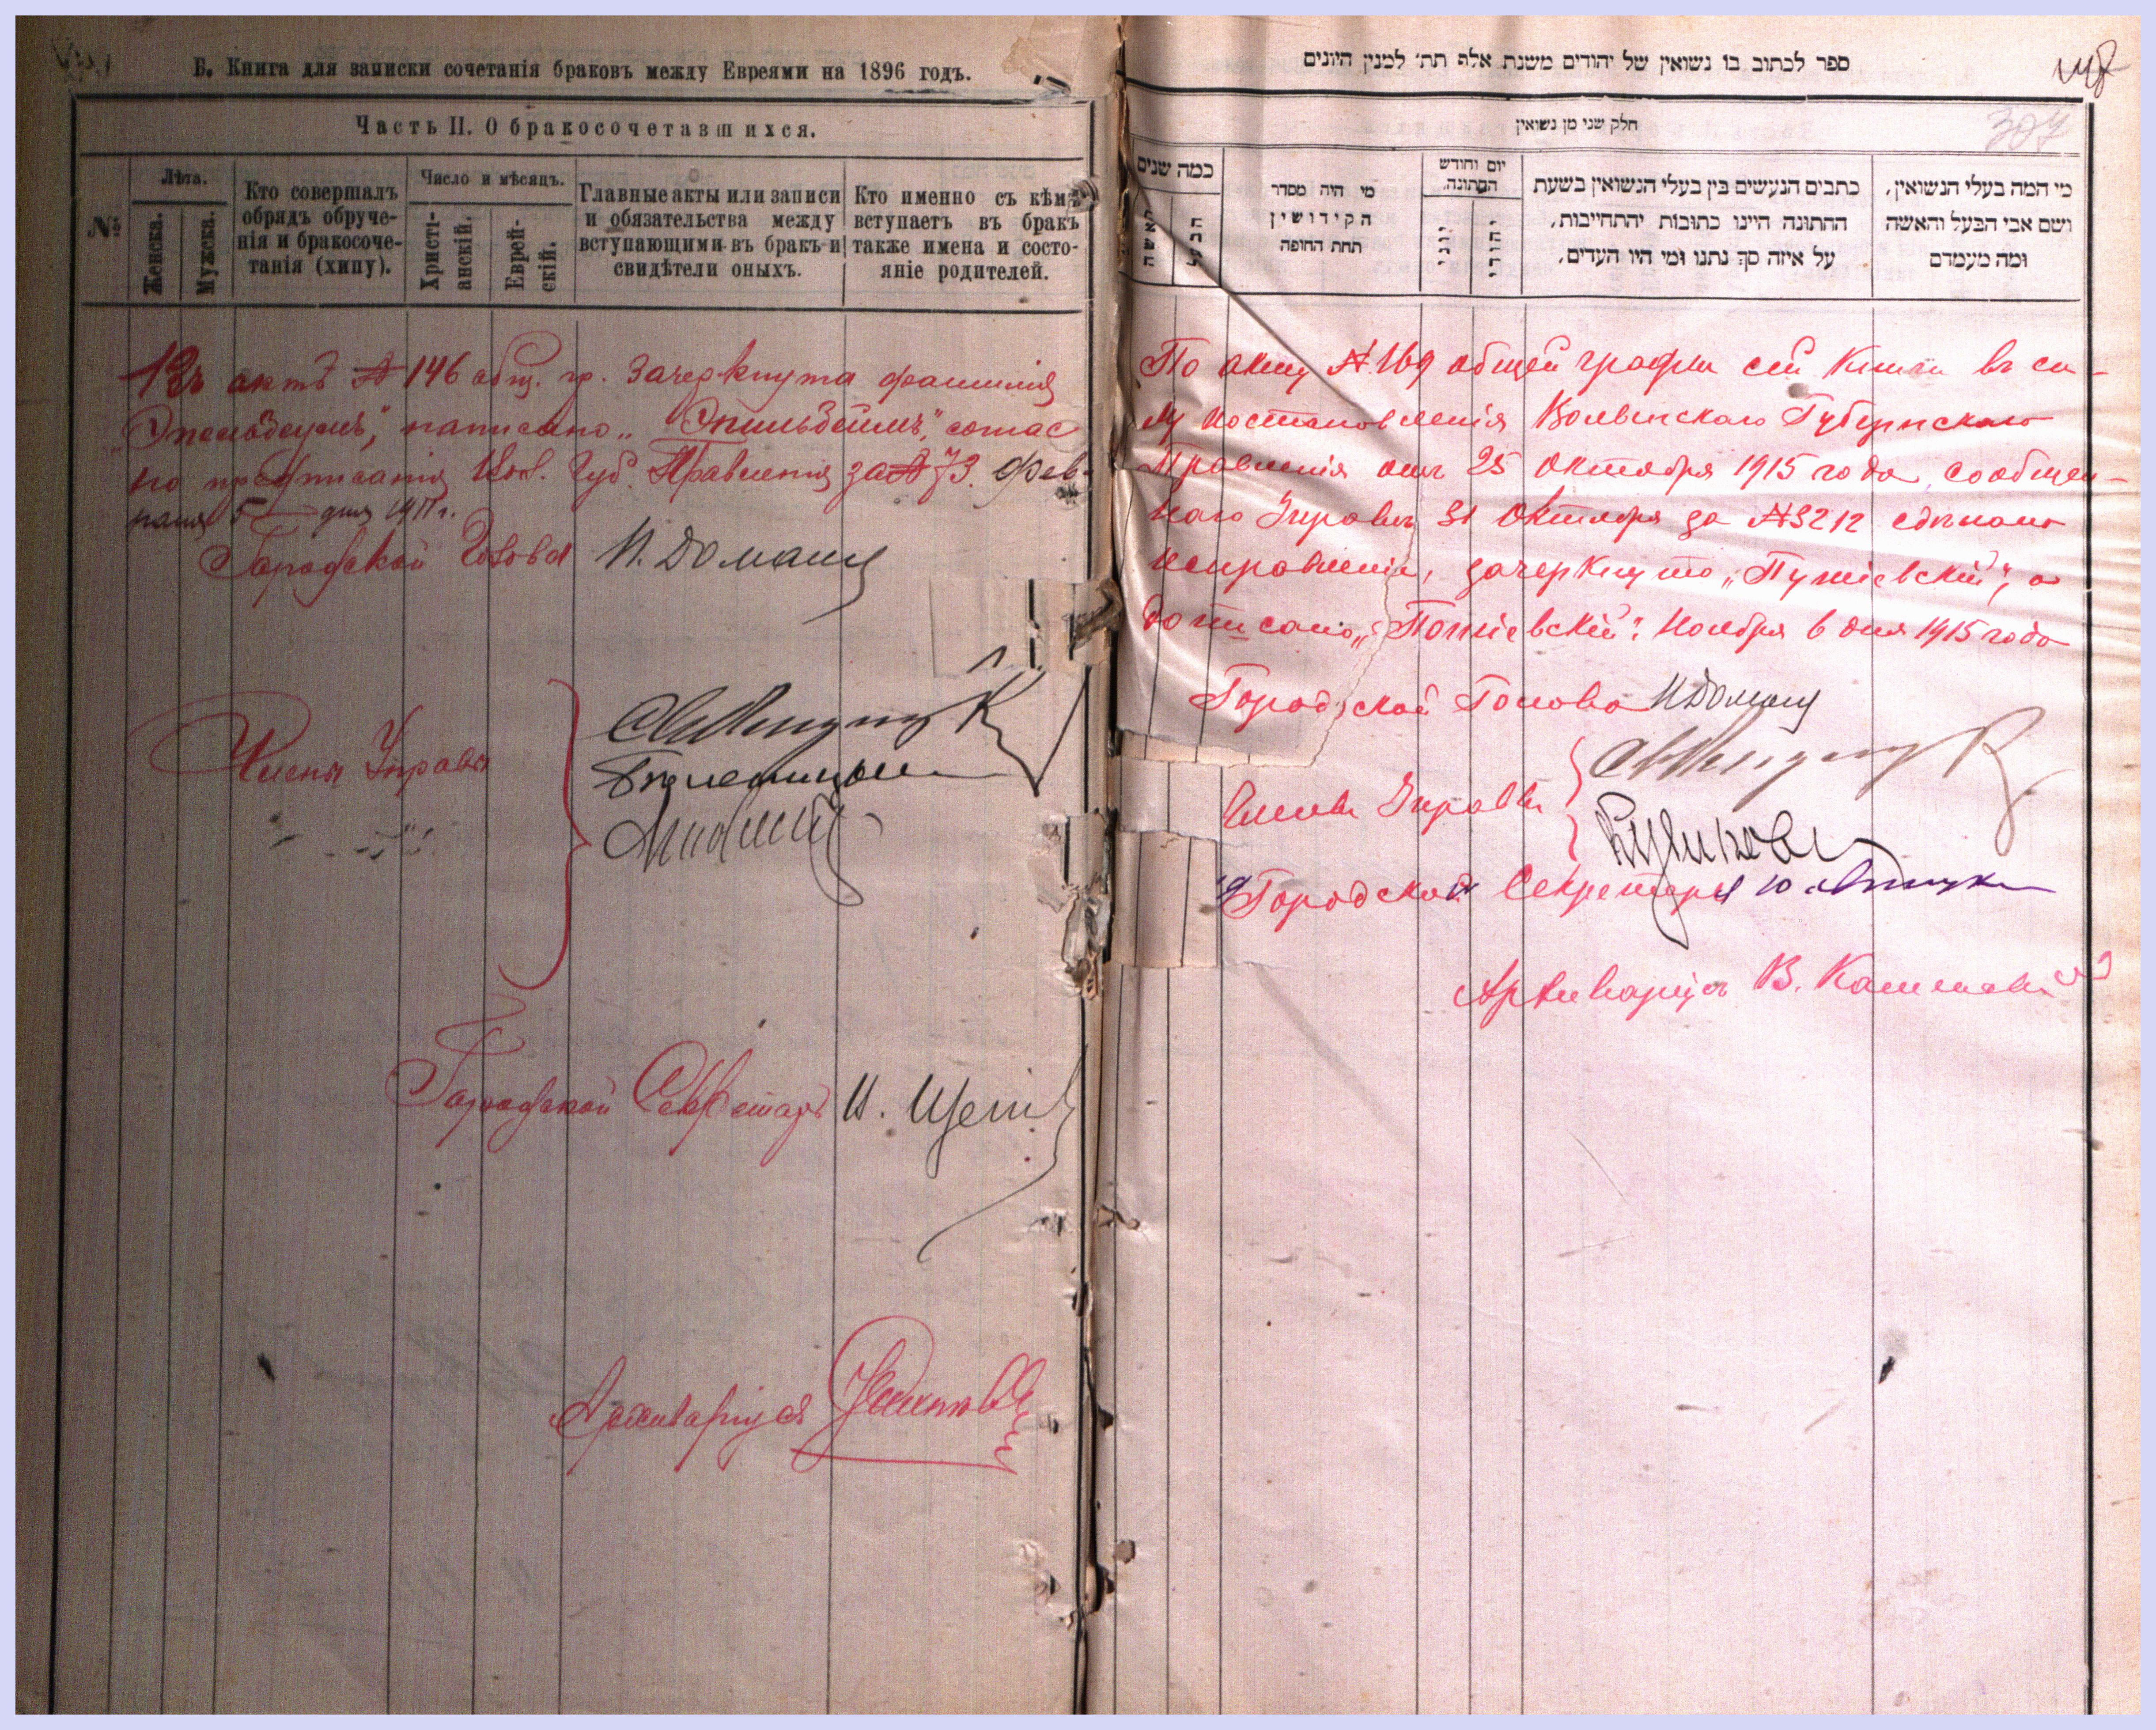 Б. Книга для записки сочетанія браковъ между Евреями на 1896 годъ.
Часть II. О бракосочетавшихся.
№
Лѣта.
Женска.
Мужска.
Кто совершалъ
обрядъ обруче-
нія и бракосоче-
танія (хипу).
Число и мѣсяцъ.
Христі-
анскій.
Еврей-
скій.
Главные акты или записи
и обязательства между
вступающими въ бракъ и
свидѣтели оныхъ.
Кто именно съ кѣмъ
вступаетъ въ бракъ
также имена и состо-
яніе родителей.
актѣ № 146 общ. гр. зачеркнута фамилія
написано
но предписанія Губ. Правленія за № 73. Фев-
раля 5 дня 1911 г.
Городской Голова И. Доманн
Члены Управы
Городской Секретарь И.
Архиваріусъ
ספר לכתוב בו נשואין של יהודים משנת אלף תת׳ למנין היונים
307
חלק שני מן נשואין
כמה שנים
האשה
הבעל
מי היה מסדר
הקידושין
תחת החופה
יום וחודש
החתונה.
יוני
יהודי
כתבים הנעשים בין בעלי הנשואין בשעת
החתונה היינו כתובות יהתחייבות,
על איזה סך נתנו ומי היו העדים,
מי המה בעלי הנשואין,
ושם אבי הבעל והאשה
ומה מעמדם
По акту № 169 общей графы сей Книги въ си-
лу постановленія Волынскаго Губернскаго
Правленія отъ 25 Октября 1915 года, сообщен-
наго Управѣ 31 Октября за № 3212 сдѣлано
исправленіе, зачеркнуто „Путіевскій“, а
дописано „Потіевскій“. Ноября 6 дня 1915 года
Городской Голова И Доманн
Члены Управы
Городской Секретарь
Архиваріусъ В.